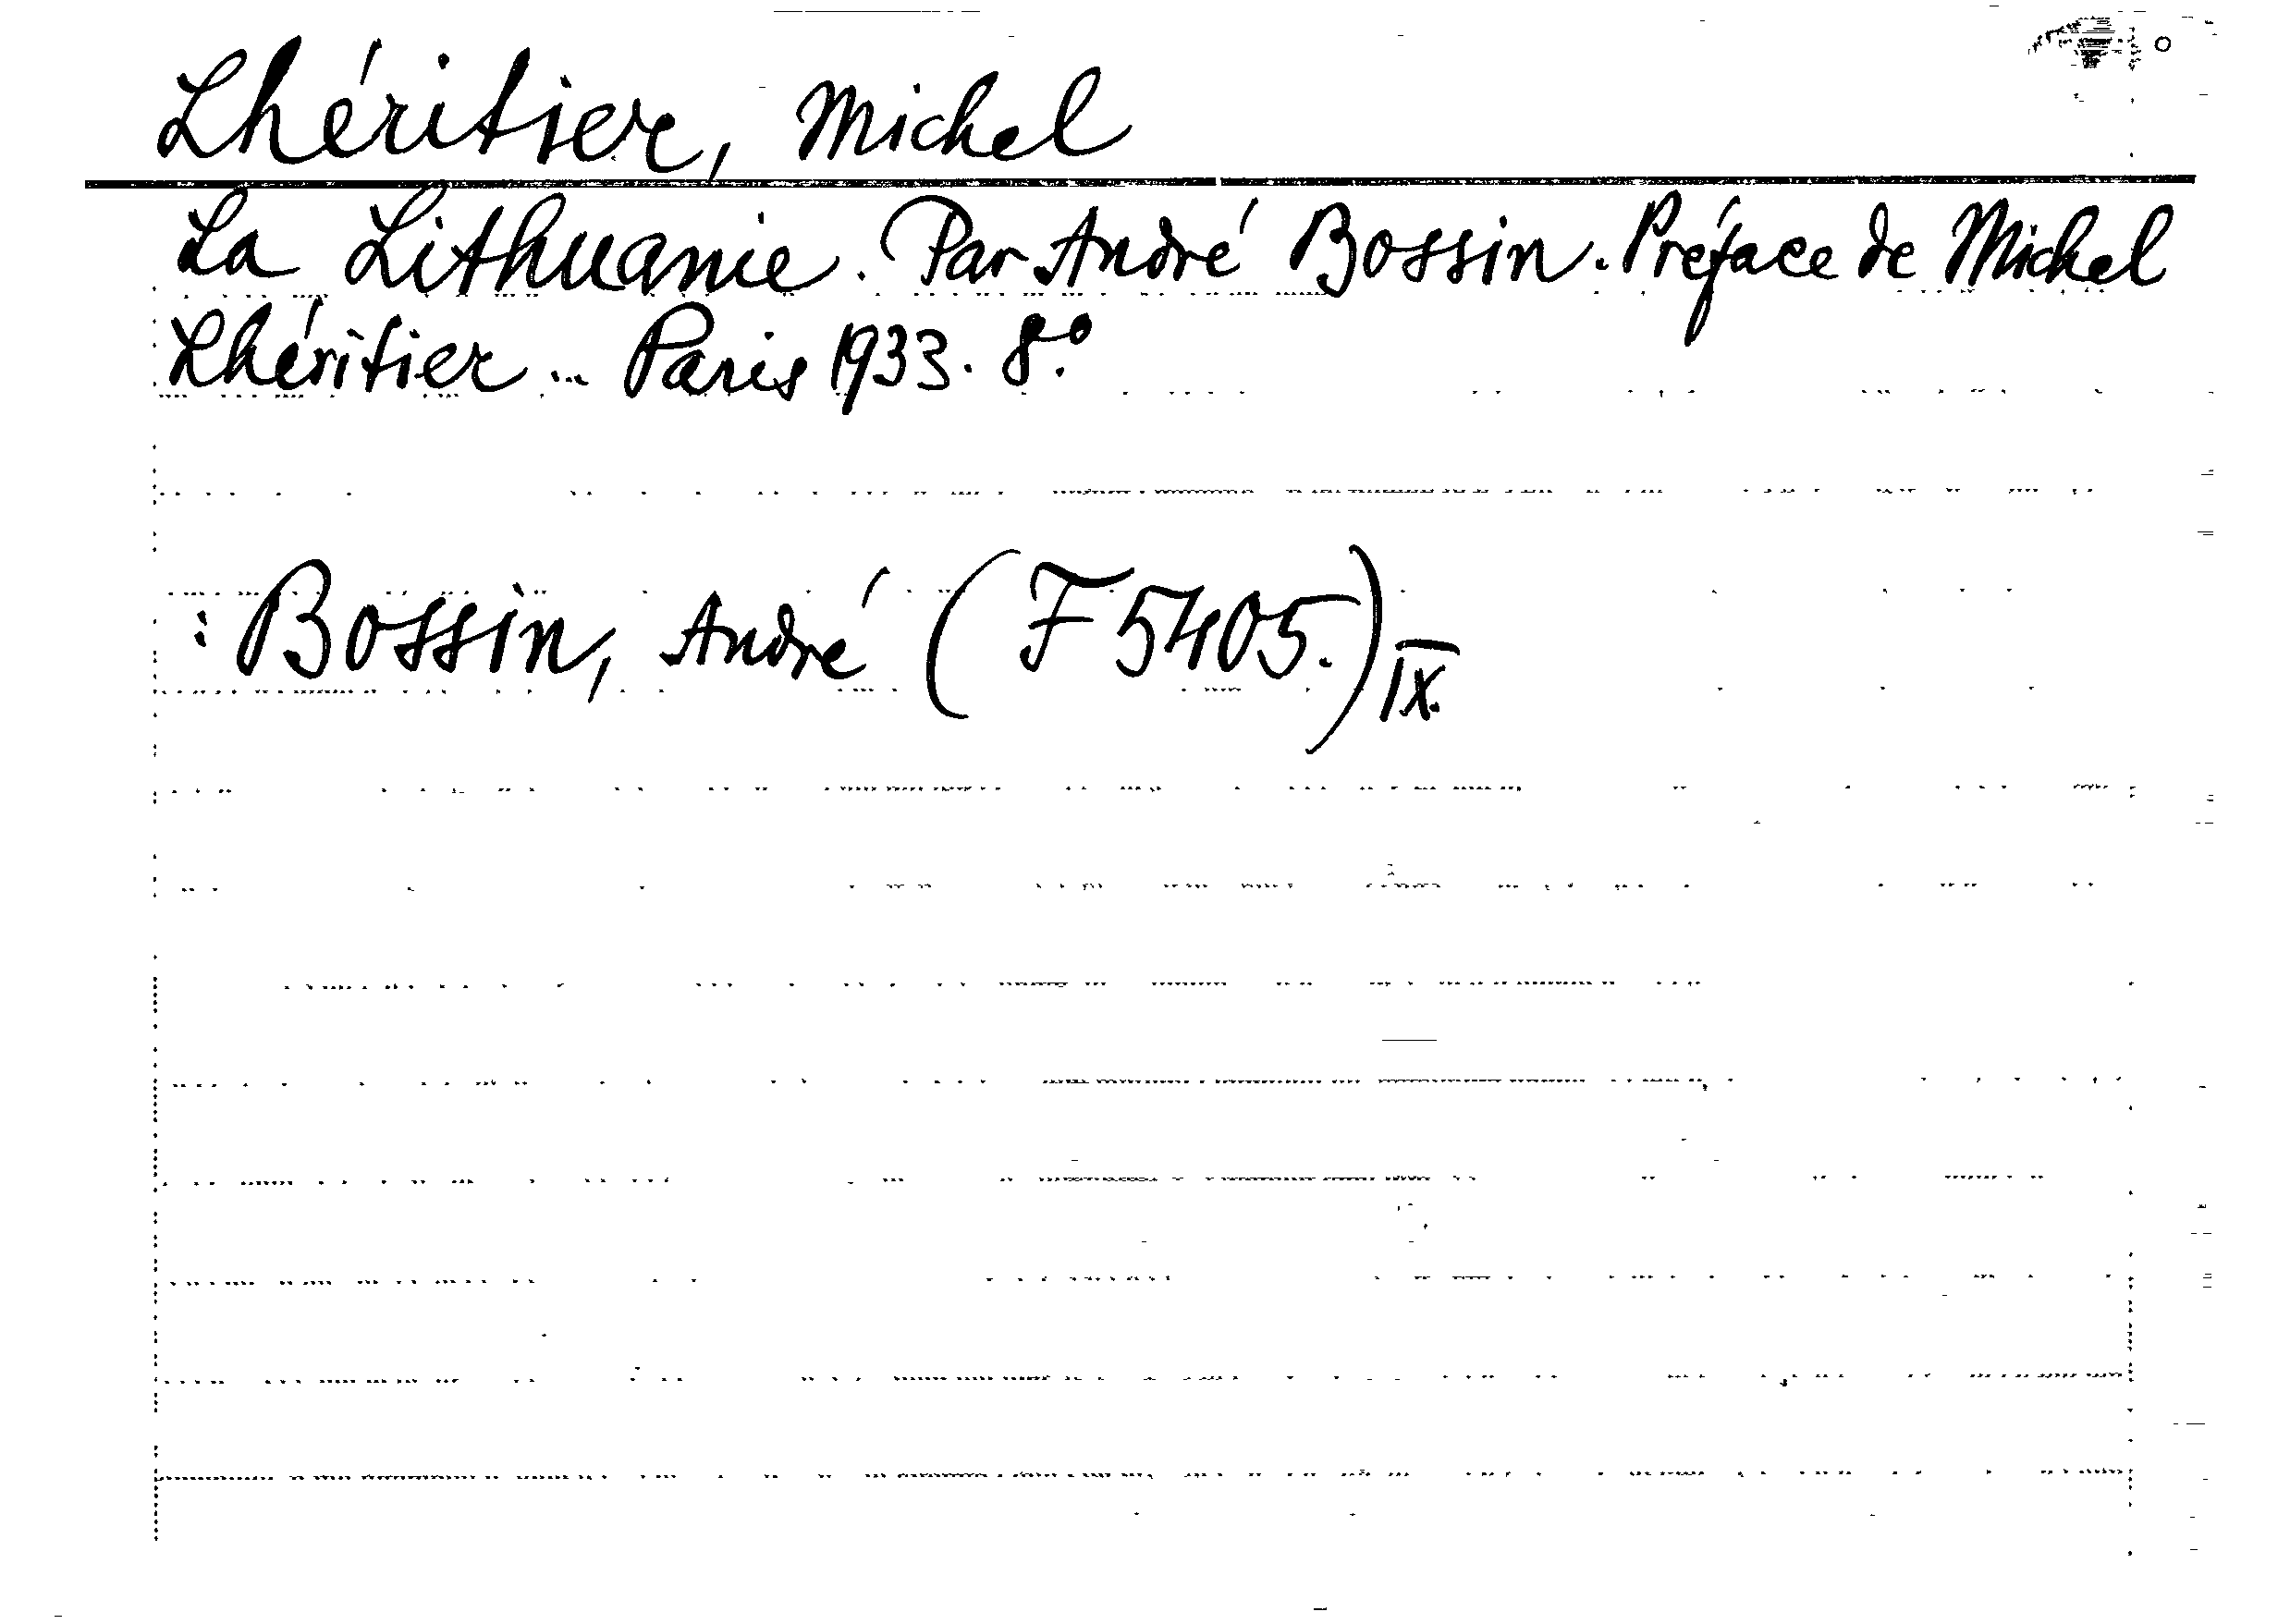 Lhéritier, Michel
La Lithuanie. Par André Bossin. Préface de Michel
Lhéritier... Paris 1933. 8°.
: Bossin, André (F 5405.) IX.